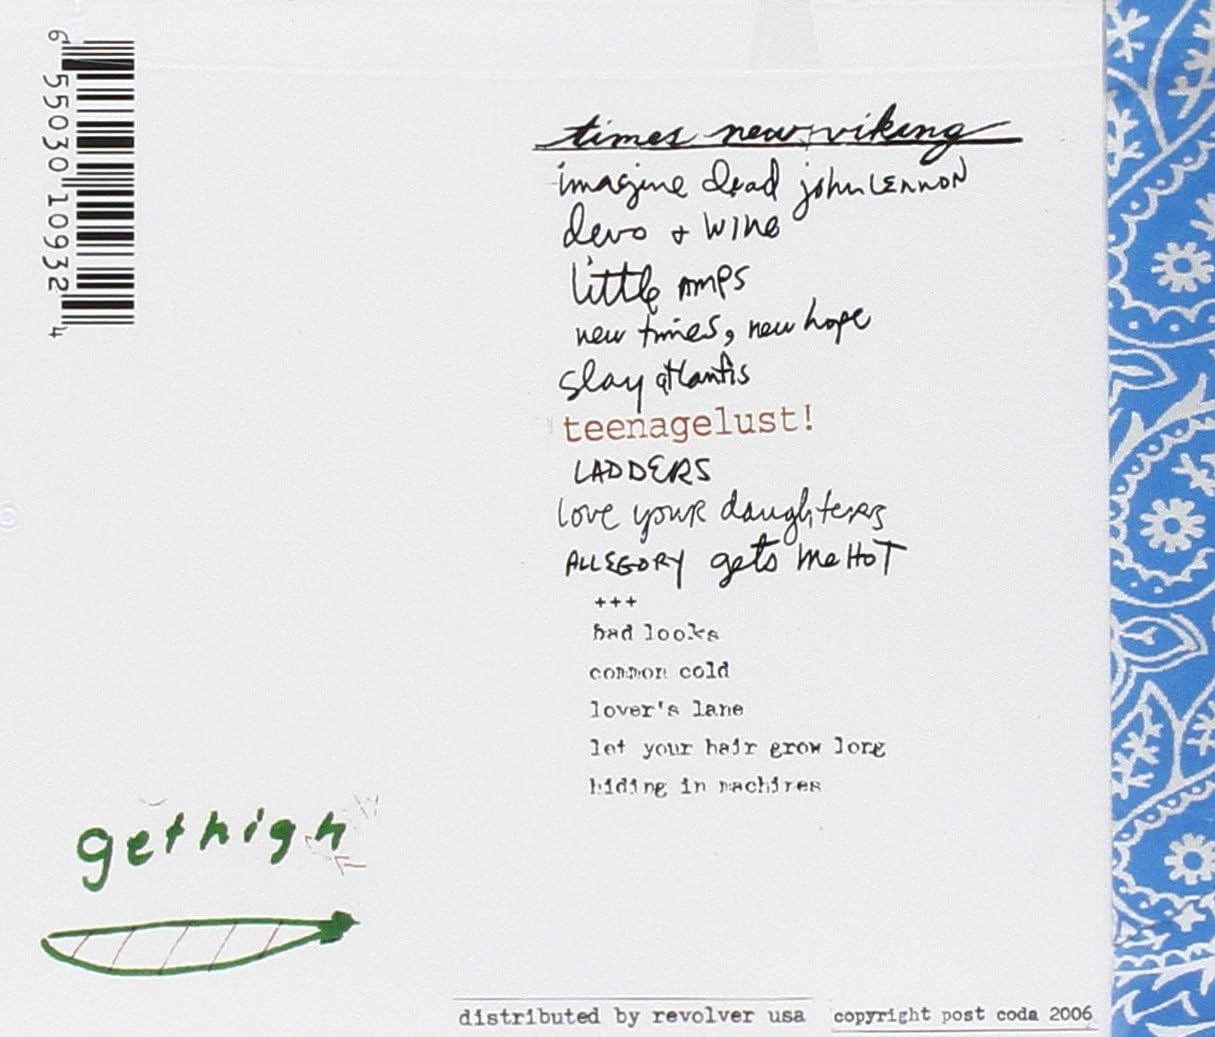 6 55030 10932 4
times new viking
imagine dead john LENNON
devo + wine
little AMPS
new times, new hope
slay atlantis
teenagelust!
LADDERS
love your daughters
ALLEGORY gets me HOT
+++
bad looks
common cold
lover's lane
let your hair grow long
hiding in machines
get high
distributed by revolver usa
copyright post coda 2006